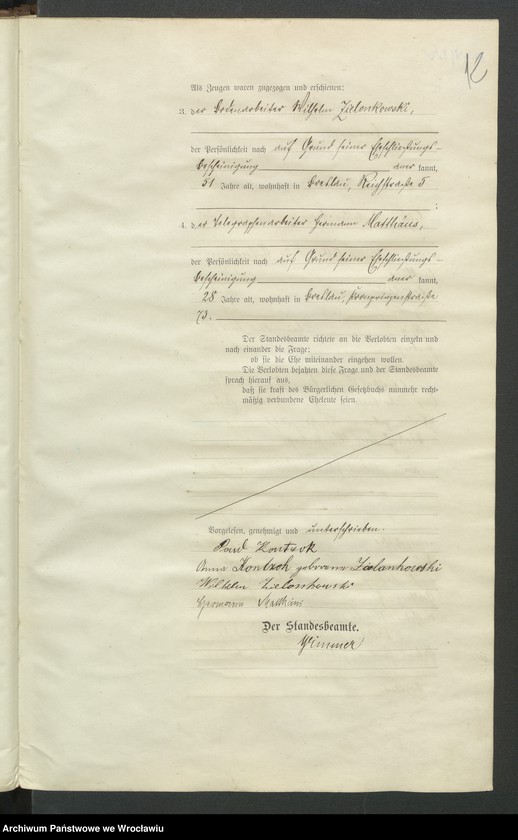 12
Als Zeugen waren zugezogen und erschienen:
3. der Bodenarbeiter Wilhelm Zielonkowski,
der Persönlichkeit nach auf Grund seiner Eheschließungs-
bescheinigung anerkannt,
51 Jahre alt, wohnhaft in Breslau, Reichstraße 5
;
4. der Telegraphenarbeiter Hermann Matthäus,
der Persönlichkeit nach auf Grund seiner Eheschließungs-
bescheinigung anerkannt,
28 Jahre alt, wohnhaft in Breslau, Kronprinzenstraße
73.
Der Standesbeamte richtete an die Verlobten einzeln und
nach einander die Frage:
ob sie die Ehe miteinander eingehen wollen.
Die Verlobten bejahten diese Frage und der Standesbeamte
sprach hierauf aus,
daß sie kraft des Bürgerlichen Gesetzbuchs nunmehr recht-
mäßig verbundene Eheleute seien.
Vorgelesen, genehmigt und unterschrieben.
Paul
Anna geborene Zielonkowski
Wilhelm Zielonkowski
Hermann Matthäus
Der Standesbeamte.
Archiwum Państwowe we Wrocławiu